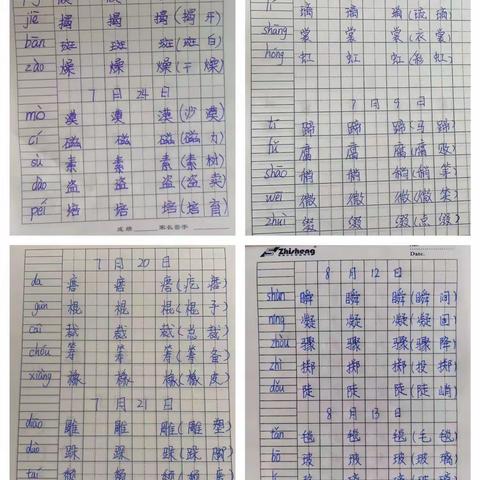 jiē 揭 揭 揭(揭开)
bān 斑 斑 斑(斑白)
zào 燥 燥 燥(干燥)
7月24日
mò 漠 漠 漠(沙漠)
cí 磁 磁 磁(磁力)
sù 素 素 素(素材)
dào 盗 盗 盗(盗卖)
péi 培 培 培(培育)
成绩 家长签字
璃 璃 璃(琉璃)
shang 裳 裳 裳(衣裳)
hóng 虹 虹 虹(彩虹)
7月9日
tí 蹄 蹄 蹄(马蹄)
fǔ 腐 腐 腐(腐败)
shāo 稍 稍 稍(稍等)
wēi 微 微 微(微笑)
zhuì 缀 缀 缀(点缀)
7月20日
da 瘩 瘩 瘩(疙瘩)
gùn 棍 棍 棍(棍子)
cái 裁 裁 裁(总裁)
chóu 筹 筹 筹(筹备)
xiàng 橡 橡 橡(橡皮)
7月21日
diāo 雕 雕 雕(雕塑)
duò 跺 跺 跺(跺脚)
Zhisheng
Date.
8月12日
shùn 瞬 瞬 瞬(瞬间)
níng 凝 凝 凝(凝固)
zhòu 骤 骤 骤(骤降)
zhì 掷 掷 掷(投掷)
dǒu 陡 陡 陡(陡峭)
8月13日
tǎn 毯 毯 毯(毛毯)
bō 玻 玻 玻(玻璃)